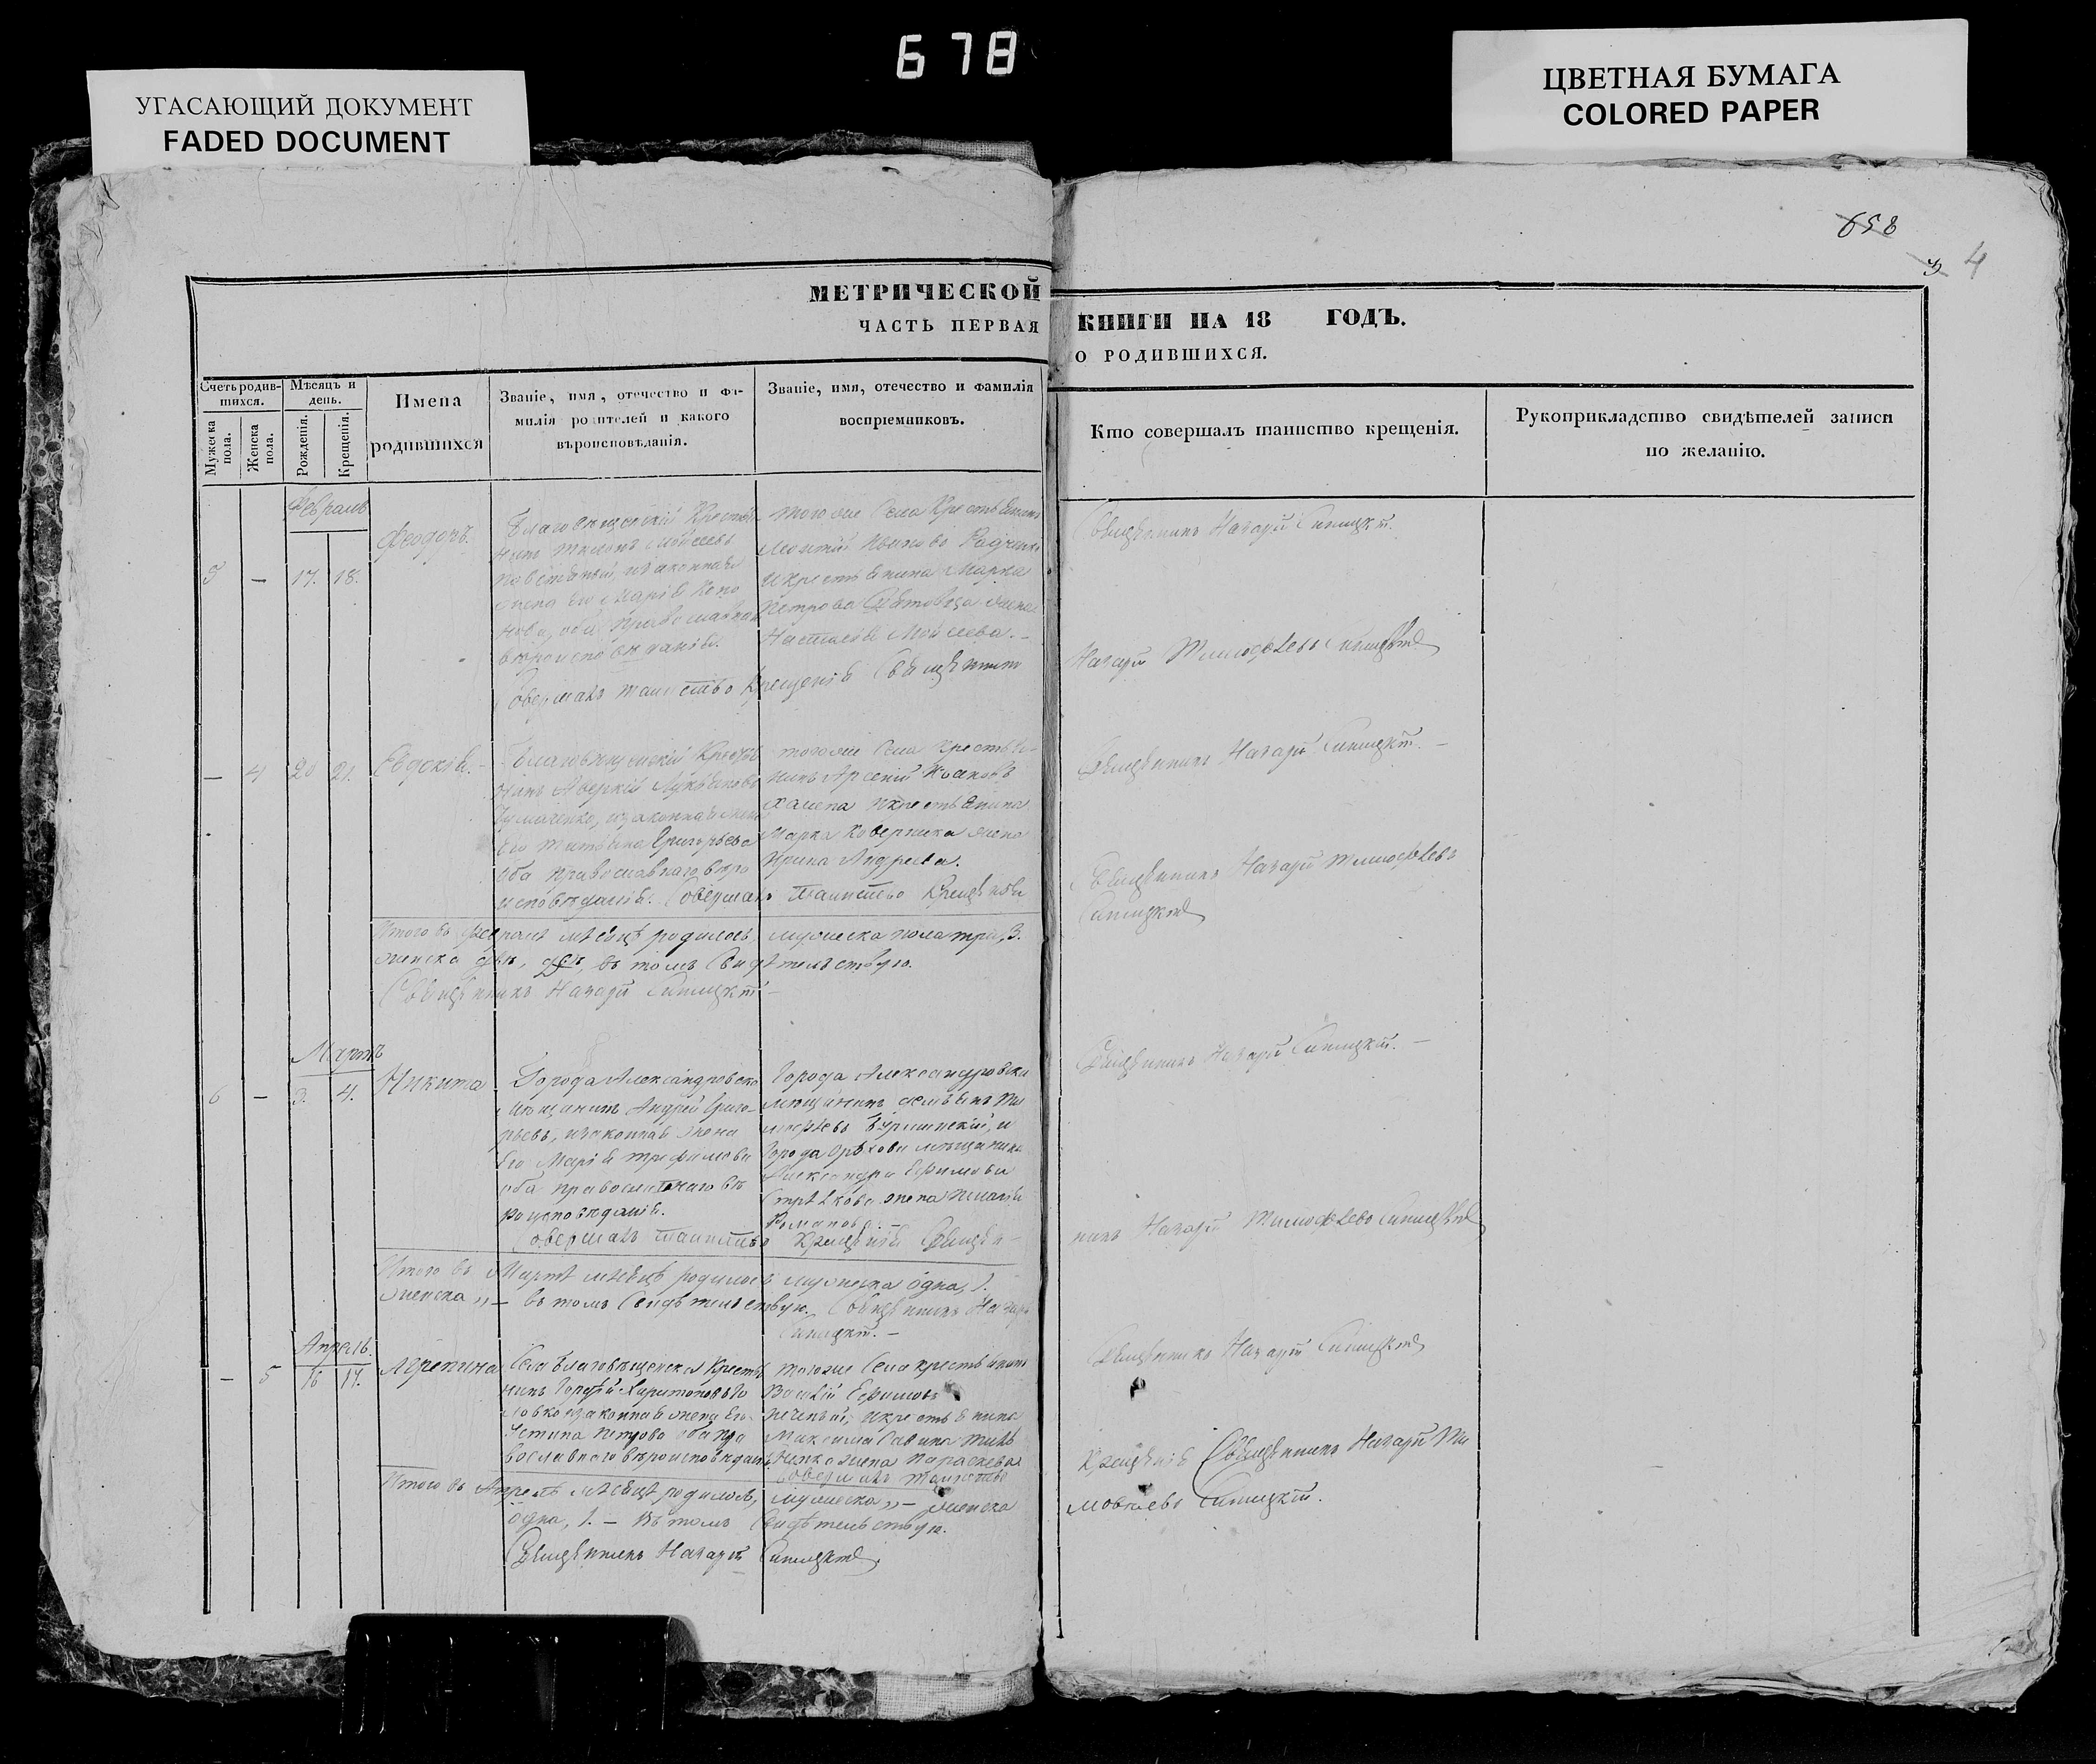 678
УГАСАЮЩИЙ ДОКУМЕНТ
FADED DOCUMENT
ЦВЕТНАЯ БУМАГА
COLORED PAPER
658
3 4
МЕТРИЧЕСКОЙ
ЧАСТЬ ПЕРВАЯ
КНИГИ НА 18 ГОДЪ.
О РОДИВШИХСЯ.
Счетъ родив-
шихся.
Мужеска
пола.
Женска
пола.
Мѣсяцъ и
день.
Рожденія.
Крещенія.
Имена
родившихся
Званіе, имя, отечество и фа-
милія родителей и какого
вѣроисповѣданія.
Званіе, имя, отечество и фамилія
воспріемниковъ.
Кто совершалъ таинство крещенія.
Рукоприкладство свидѣтелей записи
по желанію.
Февраль
5 — 17. 18.
Феодоръ.
Благовѣщенскій Крестья-
нинъ Моисеевъ
и законная
жена его Марія
оба православнаго
вѣроисповѣданія.
того же Села Крестьянинъ
Леонтій Ивановъ
и крестьянина Марка
Петрова жена
Наталія Моисеева.—
Совершалъ таинство Крещенія Священникъ
Священникъ Назарій Синицкій.
Назарій Тимофеевъ Синицкій
— 4 20 21.
Евдокія.—
Благовѣщенскій Крестья-
нинъ Аверкій
и законная жена
его Татьяна Григорьева
оба православнаго вѣро
исповѣданія. Совершалъ
того же Села Крестья-
нинъ Арсеній
и крестьянина
Марка жена
Ирина Андреева.
таинство Крещенія
Священникъ Назарій Синицкій.—
Священникъ Назарій Тимофеевъ
Синицкій
Итого въ Февралѣ мѣсяцѣ родилось мужеска пола три, 3.
женска двѣ, въ томъ Свидѣтельствую.
Священникъ Назарій Синицкій—
Мартъ
6 — 3. 4.
Никита
Города Александровска
мѣщанинъ Андрей Григо-
рьевъ, и законная жена
его Марія Трофимова
оба православнаго вѣ
роисповѣданія.
Города Александровска
мѣщанинъ Ти
мофѣевъ и
Города Орѣхова мѣщанина
Александра Ефимова
жена
Романова.—
Совершалъ таинство Крещенія Священ-
Священникъ Назарій Синицкій.—
никъ Назарій Тимофеевъ Синицкій
Итого въ Мартѣ мѣсяцѣ родилось мужеска одна, 1.
женска „— въ томъ Свидѣтельствую. Священникъ Назарій
Синицкій.—
Апрель.
— 5 16 17.
Села Благовѣщенска Крестья
нинъ Харитоновъ
и законная жена его
Устина Петрова оба пра
вославнаго вѣроисповѣданія
того же Села крестьянинъ
Василій Ефимовъ
и крестьянина
Максима
жена Параскева
Совершалъ таинство
Священникъ Назарій Синицкій
Крещенія Священникъ Назарій Ти
мофѣевъ Синицкій.
Итого въ Апрелѣ мѣсяцѣ родилось, мужеска „— женска
одна, 1.— въ томъ Свидѣтельствую.
Священникъ Назарій Синицкій.